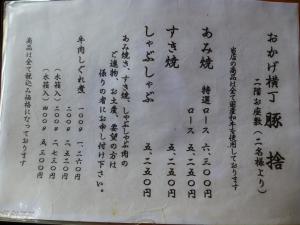 おかげ横丁 豚捨
二階お座敷（二名様より）
当店の商品は全て国産和牛を使用しております
あみ焼 特選ロース 六、三〇〇円
ロース 五、二五〇円
すき焼 五、二五〇円
しゃぶしゃぶ 五、二五〇円
あみ焼き、すき焼、しゃぶしゃぶ肉の
ご進物、お土産、ご要望の方は
係りの者にお申し付け下さい。
牛肉しぐれ煮 一〇〇g 一、二六〇円
二〇〇g 二、五二〇円
（木箱入）二〇〇g 二、七三〇円
（木箱入）四〇〇g 五、三〇〇円
商品は全て税込み価格になっております